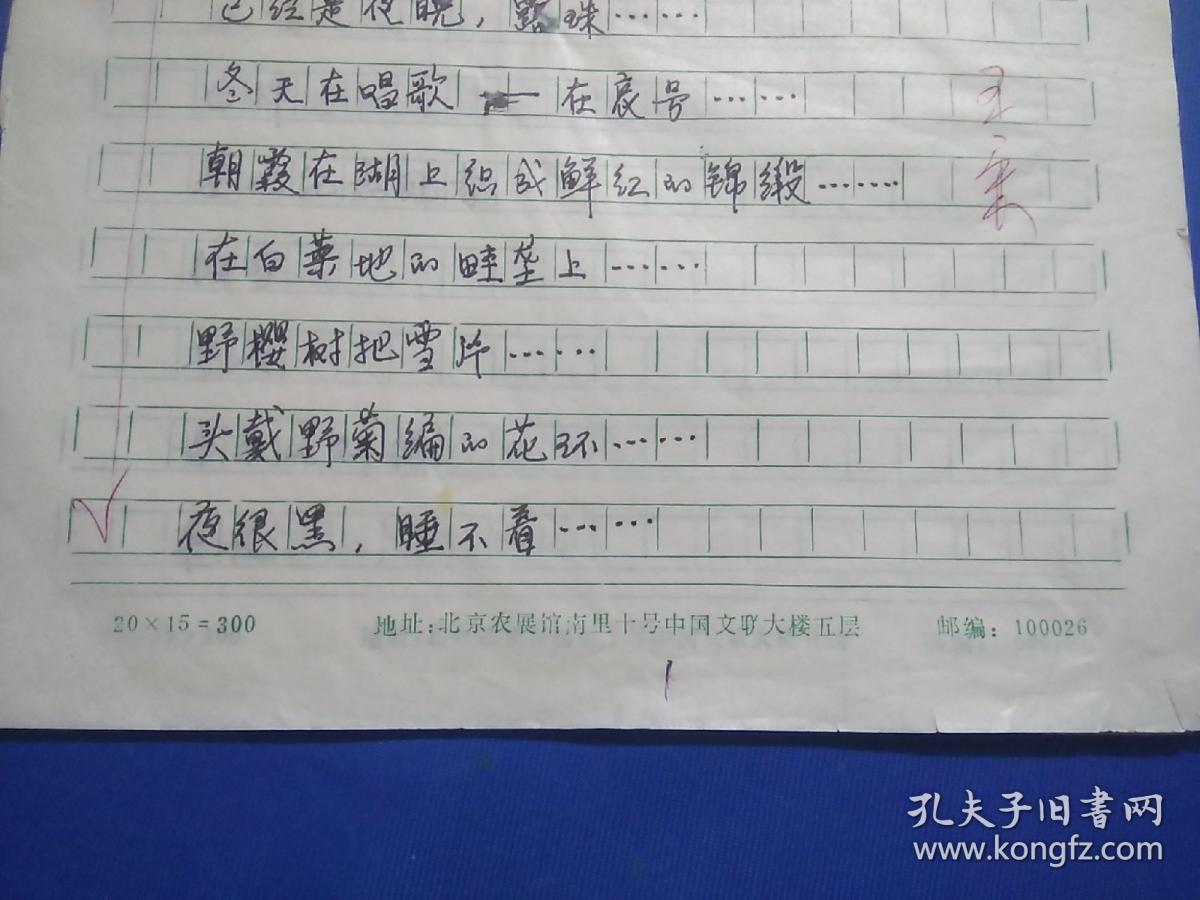 已经是夜晚，露珠……
冬天在唱歌——在哀号……
朝霞在湖上织成鲜红的锦缎……
在白菜地的畦垄上……
野樱树把雪片……
头戴野菊编的花环……
√ 夜很黑，睡不着……
20×15=300 地址:北京农展馆南里十号中国文联大楼五层 邮编: 100026
1
孔夫子旧书网
www.kongfz.com